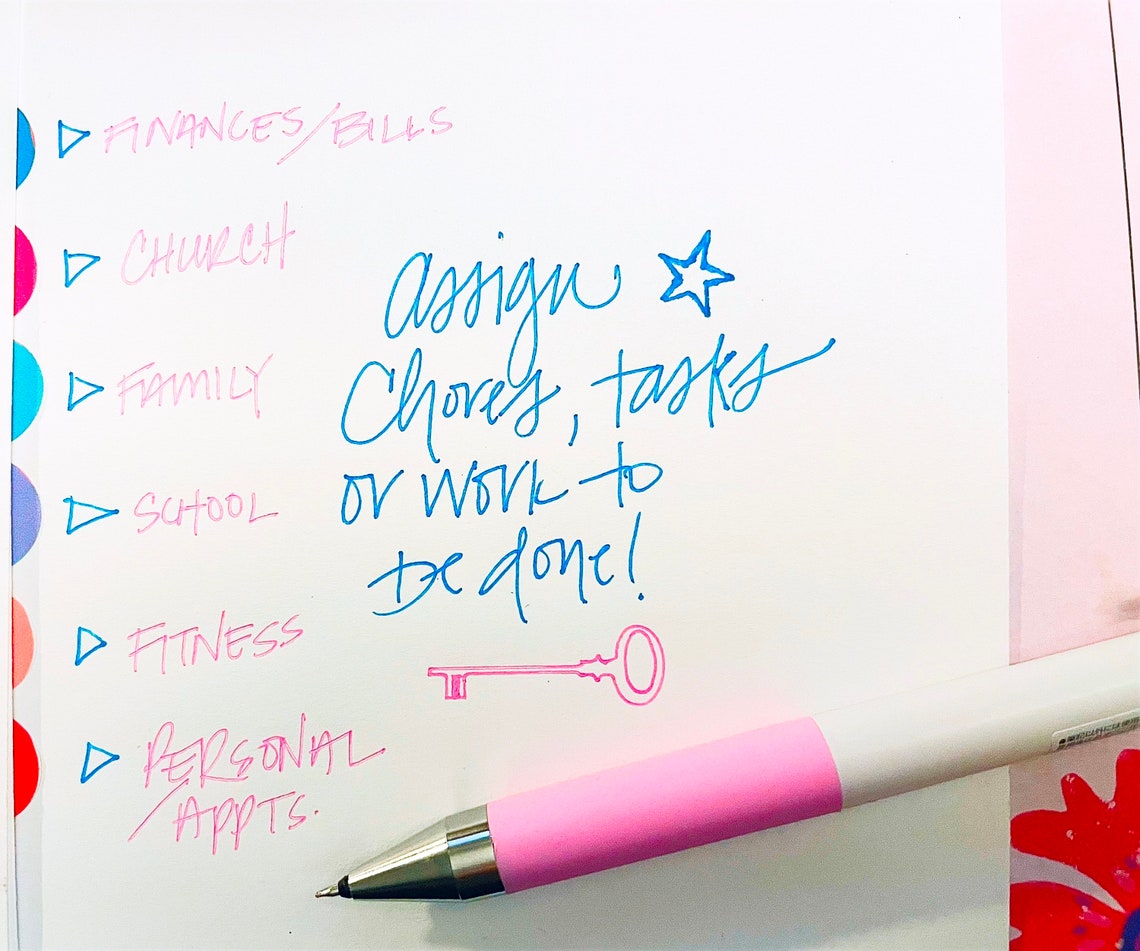 FINANCES/BILLS
CHURCH
FAMILY
SCHOOL
FITNESS
PERSONAL
/APPTS.
assign
Chores, tasks
or work to
be done!